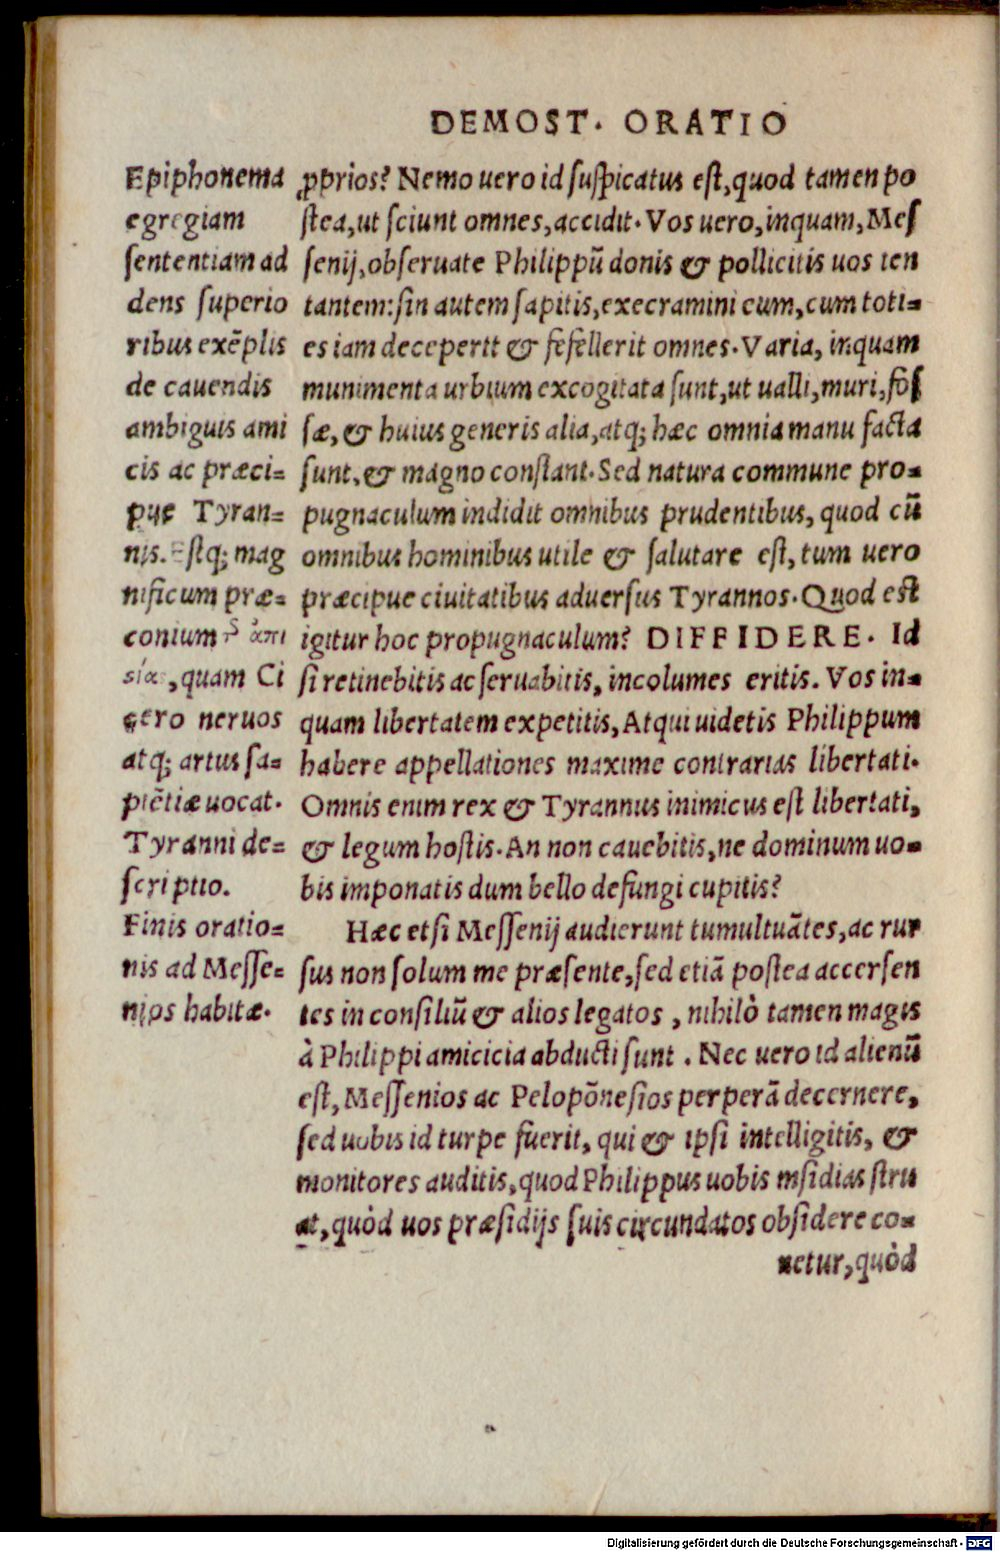 DEMOST. ORATIO
Epiphonema
egregiam
sententiam ad
dens superio
ribus exẽplis
de cauendis
ambiguis ami
cis ac præci=
pue Tyran=
nis. Estq; mag
nificum præ=
conium τ͂ ἀπι
σίας, quam Ci
cero neruos
atq; artus sa=
piẽtiæ uocat.
Tyranni de=
scriptio.
Finis oratio=
nis ad Messe=
nios habitæ.
ꝓprios? Nemo uero id suspicatus est, quod tamen po
stea, ut sciunt omnes, accidit. Vos uero, inquam, Mes
senij, obseruate Philippũ donis & pollicitis uos ten
tantem: sin autem sapitis, execramini eum, cum toti=
es iam deceperit & fefellerit omnes. Varia, inquam
munimenta urbium excogitata sunt, ut ualli, muri, fos
sæ, & huius generis alia, atq; hæc omnia manu facta
sunt, & magno constant. Sed natura commune pro=
pugnaculum indidit omnibus prudentibus, quod cũ
omnibus hominibus utile & salutare est, tum uero
præcipue ciuitatibus aduersus Tyrannos. Quod est
igitur hoc propugnaculum? DIFFIDERE. Id
si retinebitis ac seruabitis, incolumes eritis. Vos in=
quam libertatem expetitis, Atqui uidetis Philippum
habere appellationes maxime contrarias libertati.
Omnis enim rex & Tyrannus inimicus est libertati,
& legum hostis. An non cauebitis, ne dominum uo=
bis imponatis dum bello defungi cupitis?
Hæc etsi Messenij audierunt tumultuãtes, ac rur
sus non solum me præsente, sed etiã postea accersen
tes in consiliũ & alios legatos, nihilò tamen magis
à Philippi amicicia abducti sunt. Nec uero id alienũ
est, Messenios ac Pelopõnesios perperã decernere,
sed uobis id turpe fuerit, qui & ipsi intelligitis, &
monitores auditis, quod Philippus uobis insidias stru
at, quòd uos præsidijs suis circundatos obsidere co=
netur, quòd
Digitalisierung gefördert durch die Deutsche Forschungsgemeinschaft - DFG